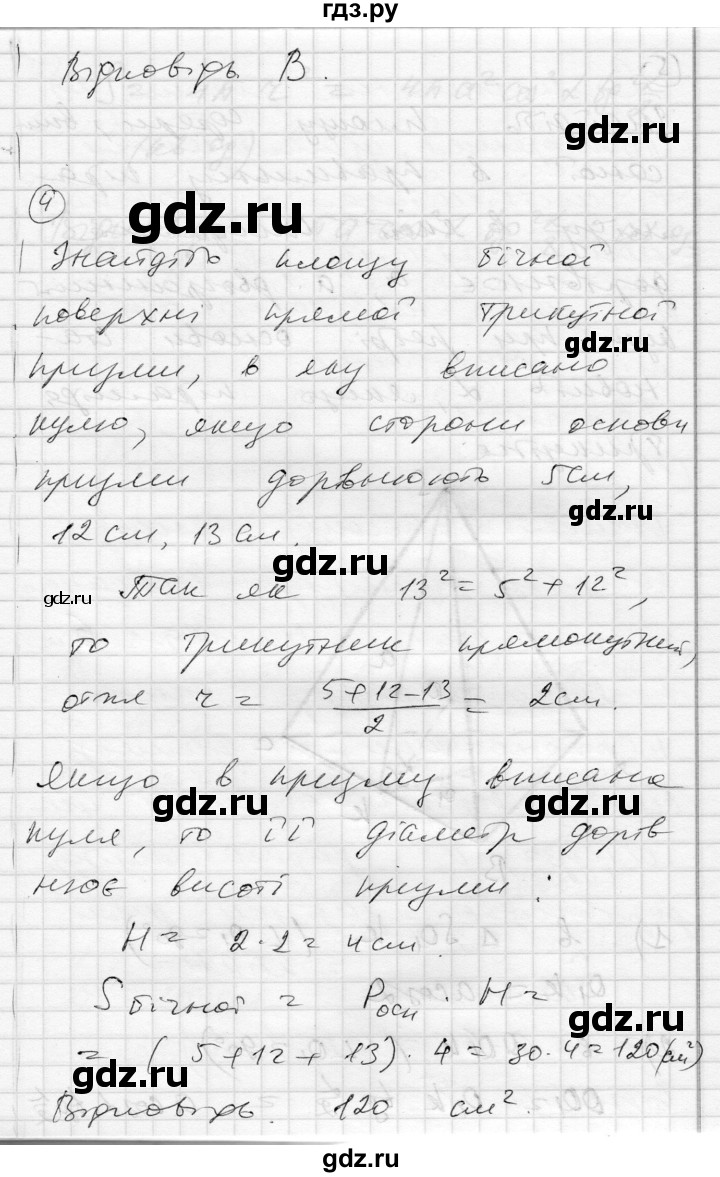 гдз.ру
Відповідь В.
④
gdz.ru
Знайдіть площу бічної
поверхні прямої трикутної
gdz.ru
призми, в яку вписано
кулю, якщо сторони основи
gdz.ru
призми дорівнюють 5см,
gdz.ru
12 см, 13 см.
gdz.ru
gdz.ru
Так як 13² = 5² + 12²,
то трикутник прямокутний,
отже r = (5+12-13)/2 = 2см.
Якщо в призму вписана
gdz.ru
gdz.ru
куля, то її діаметр дорів
нює висоті призми:
H = 2·2 = 4см
Sбічної = Pосн · H =
gdz.ru
= (5+12+13)·4 = 30·4 = 120(см²)
gdz.ru
Відповідь. 120 см².
gdz.ru
gdz.ru